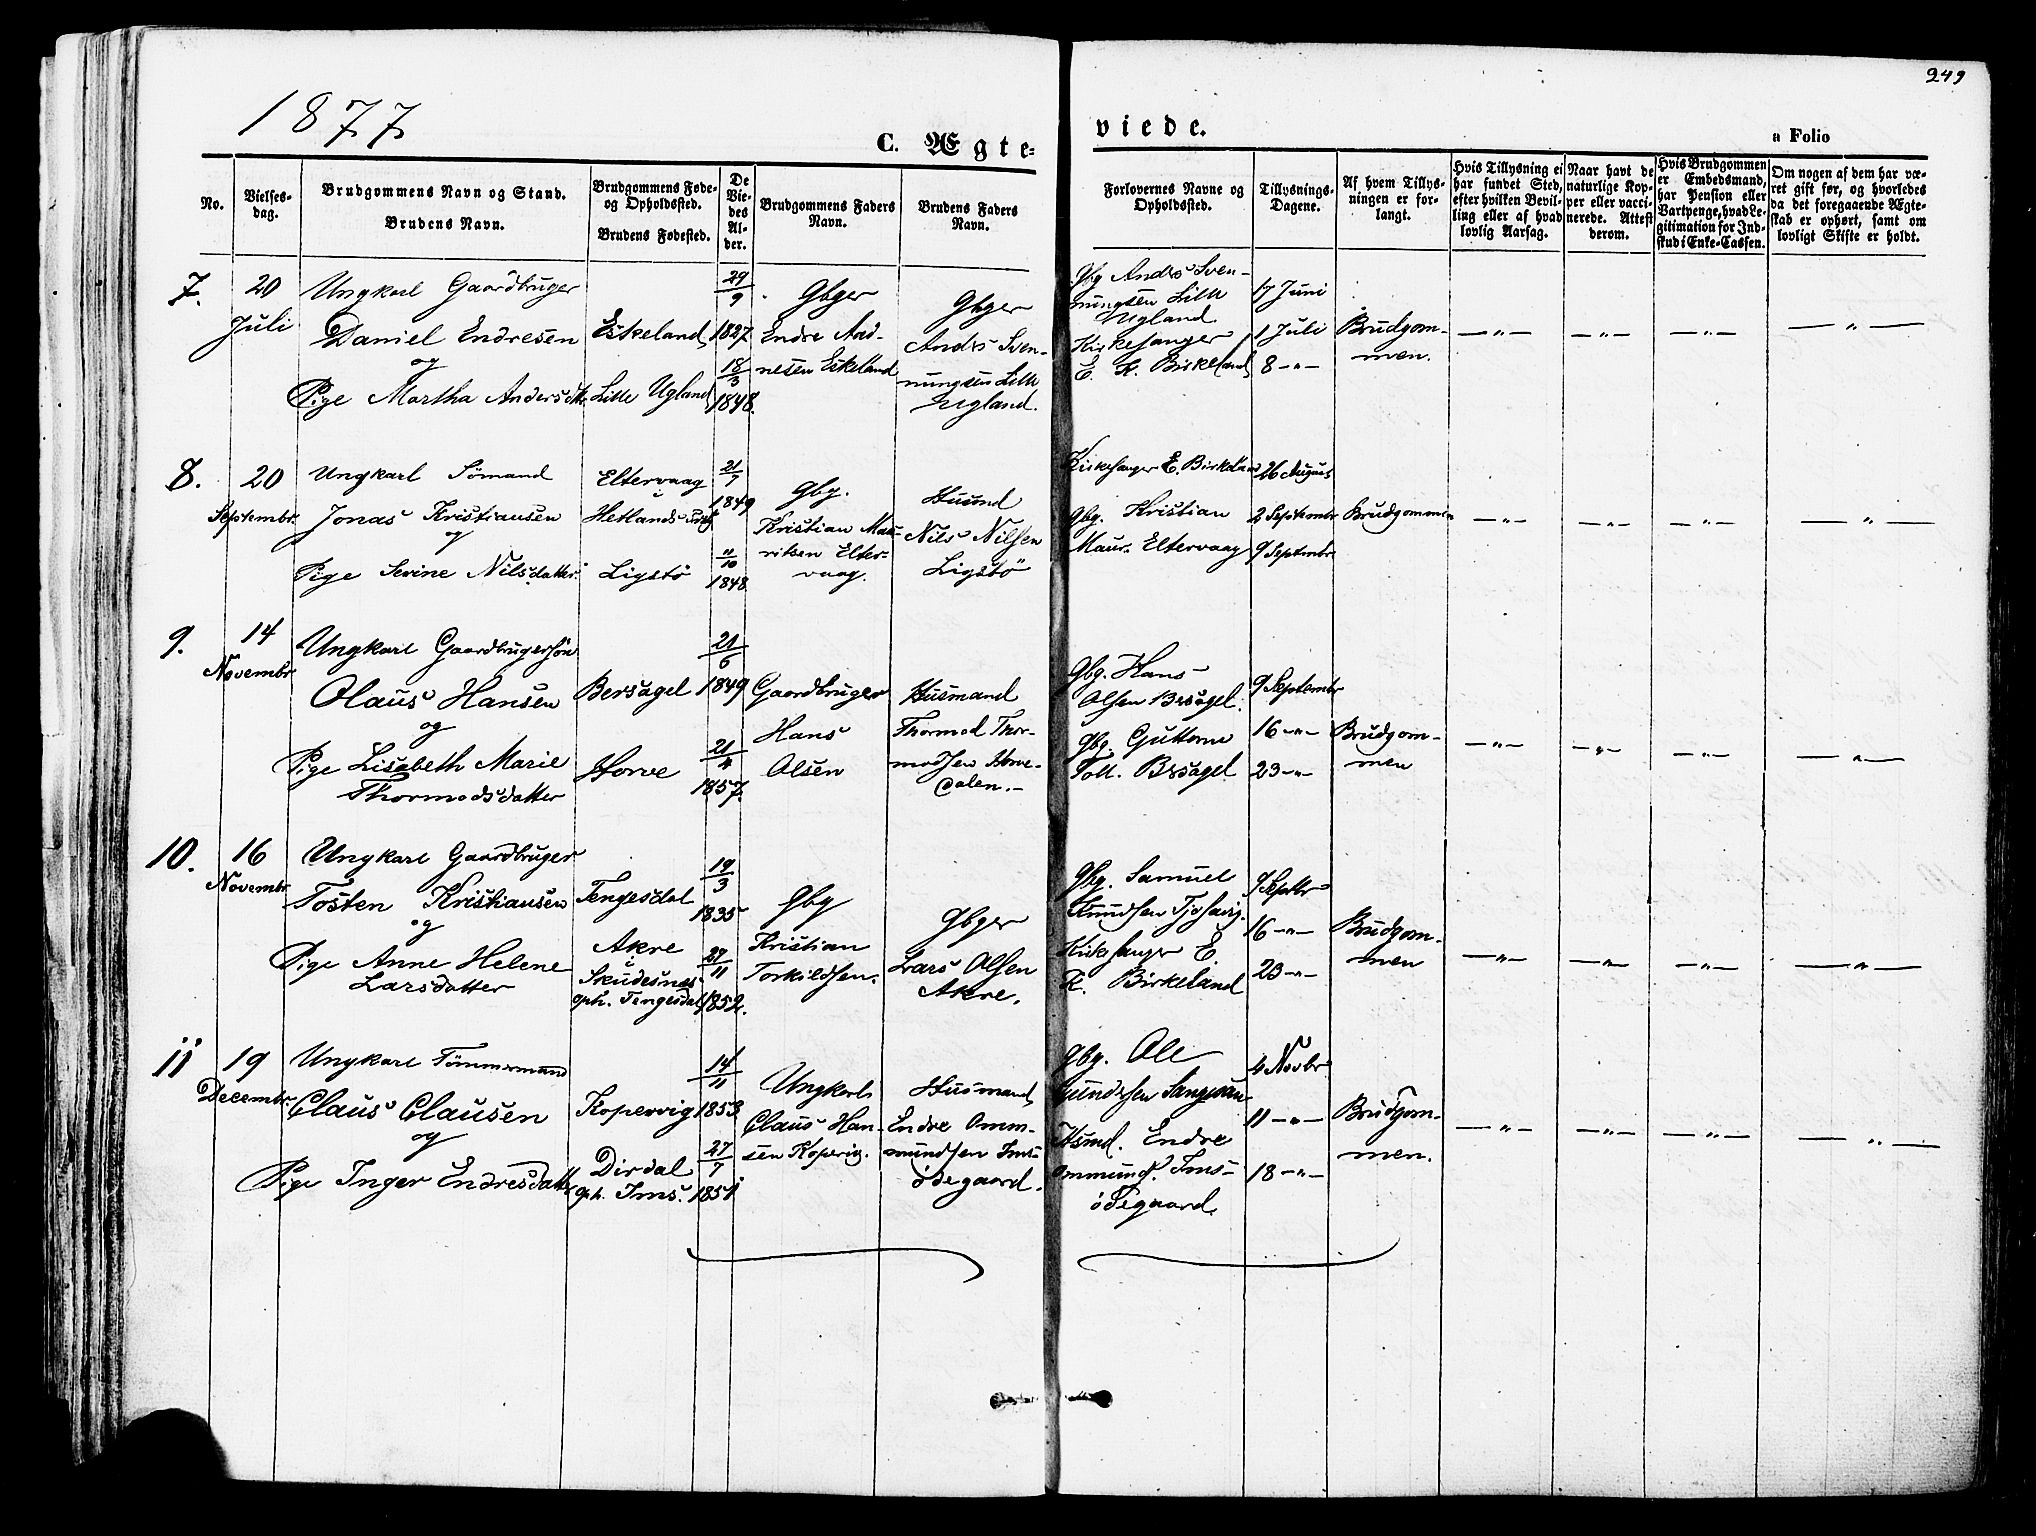 249
1877
C. Ægte-
viede.
a Folio
No.
Vielses-
dag.
Brudgommens Navn og Stand.
Brudens Navn.
Brudgommens Føde-
og Opholdssted.
Brudens Fødested.
De
Vie-
des
Al-
der.
Brudgommens Faders
Navn.
Brudens Faders
Navn.
Forlovernes Navne og
Opholdssted.
Tillysnings-
Dagene.
Af hvem Tillys-
ningen er for-
langt.
Hvis Tillysning ei
har fundet Sted,
efter hvilken Bevil-
ling eller af hvad
lovlig Aarsag.
Naar havt de
naturlige Kop-
per eller vacci-
nerede. Attest
derom.
Hvis Brudgommen
er Embedsmand,
har Pension eller
Vartpenge, hvad Le-
gitimation for Ind-
skud i Enke-Cassen.
Om nogen af dem har væ-
ret gift før, og hvorledes
da det foregaaende Ægte-
skab er ophørt, samt om
lovligt Skifte er holdt.
7.
20
Juli
Ungkarl Gaardbruger
Daniel Endresen
og
Pige Martha Andersdtr.
Eskeland
Lille Ugland
29/9
1827
18/3
1848.
Gbger
Endre Aad-
nesen Eskeland
Gbger
Anders Sven-
nungsen Lille
Ugland.
Gbg Anders Sven-
nungsen Lille
Ugland.
Kirkesanger
E. K. Birkeland
17 Juni
1 Juli
8 -"-
Brudgom-
men.
-"- -"- -"- -"-
8.
20
Septembr.
Ungkarl Sömand
Jonas Kristiansen
og
Pige Serine Nilsdatter
Eltervaag
i
Hetlands
Ligstö
21/7
1849
11/10
1848.
Gbg.
Kristian Mau-
ritsen Elter-
vaag.
Husmd
Nils Nilsen
Ligstö
Kirkesanger E. Birkeland
Gbg. Kristian
Maur. Eltervaag
26 August
2 Septembr
9 Septembr
Brudgommen
-"- -"- -"- -"-
9.
14
Novembr
Ungkarl Gaardbrugersön
Olaus Hansen
og
Pige Lisabeth Marie
Thormodsdatter
Bersagel
Horve
21/6
1849
21/4
1857.
Gaardbruger
Hans
Olsen
Husmand
Thormod Thor-
modsen Horve-
dalen.-
Gbg. Hans
Olsen Bersagel.
Gbg. Guttorm
Toll. Bersagel
9 Septembr
16 -"-
23 -"-
Brudgom-
men
-"- -"- -"- -"-
10.
16
Novembr.
Ungkarl Gaardbruger
Tosten Kristiansen
og
Pige Anne Helene
Larsdatter
Tengesdal
Akre
i
Skudesnæs
oph. Tengesdal
19/3
1835
27/11
1852.
Gbg
Kristian
Torkildsen.
Gbger
Lars Olsen
Akre.
Gbg. Samuel
Knudsen
Kirkesanger E.
K. Birkeland
9 Septbr
16 -"-
23 -"-
Brudgom-
men
-"- -"- -"- -"-
11
19
Decembr.
Ungkarl Tömmermand
Claus Clausen
og
Pige Inger Endresdatter
Kopervig
Dirdal
oph. Ims.
14/11
1853.
27/7
1851.
Ungkarls
Claus Han-
sen Kopervig.
Husmand
Endre Omm-
mundsen Ims-
ödegaard.
Gbg. Ole
Husmd. Endre
Ommunds. Ims-
ödegaard.
4 Novbr.
11 -"-
18 -"-
Brudgom-
men.
-"- -"- -"- -"-